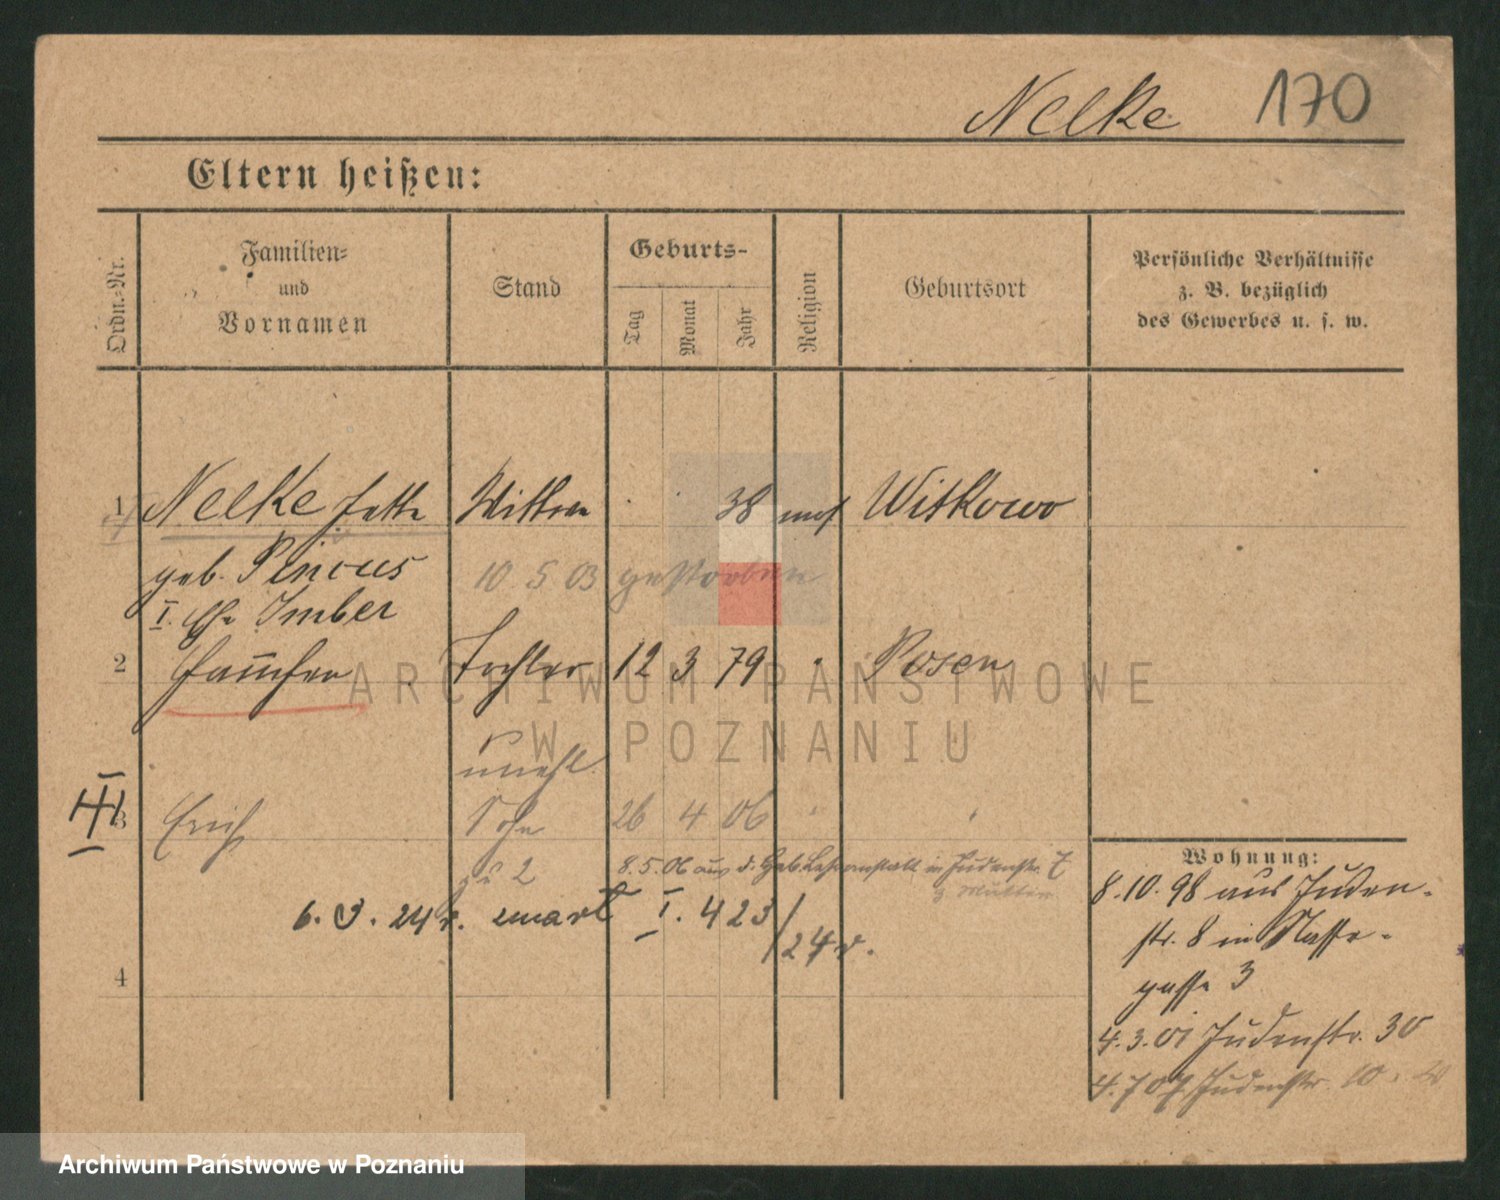 Nelke 170
Eltern heißen:
Ordn.-Nr.
Familien-
und
Vornamen
Stand
Geburts-
Tag
Monat
Jahr
Religion
Geburtsort
Persönliche Verhältnisse
z. B. bezüglich
des Gewerbes u. s. w.
1 Nelke Witkowo
38 mos
geb. Pincus
10 5 03 gestorben
I. Ehe Imber
2 Tochter 12 3 79 " Posen
unehl.
3 Erich Sohn 26 4 06 " "
zu 2
8.5.06 aus d. Geb. Lehranstalt in Judenstr. 7
z Mutter
6. 3. 24 I. 423/24
4
Wohnung:
8.10.98 aus Juden-
str. 8 in Nasse-
gasse 3
4.3.01 Judenstr. 30
4.7.07 Judenstr. 10
ARCHIWUM PAŃSTWOWE
W POZNANIU
Archiwum Państwowe w Poznaniu